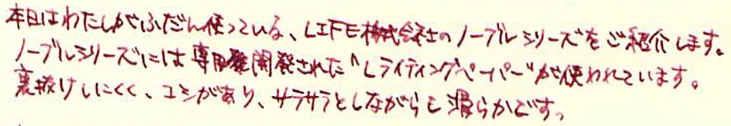 本日はわたしがふだん使っている、LIFE株式会社のノーブルシリーズをご紹介します。
ノーブルシリーズには専用開発された"Lライティングペーパー"が使われています。
裏抜けしにくく、コシがあり、サラサラとしながらも滑らかです。